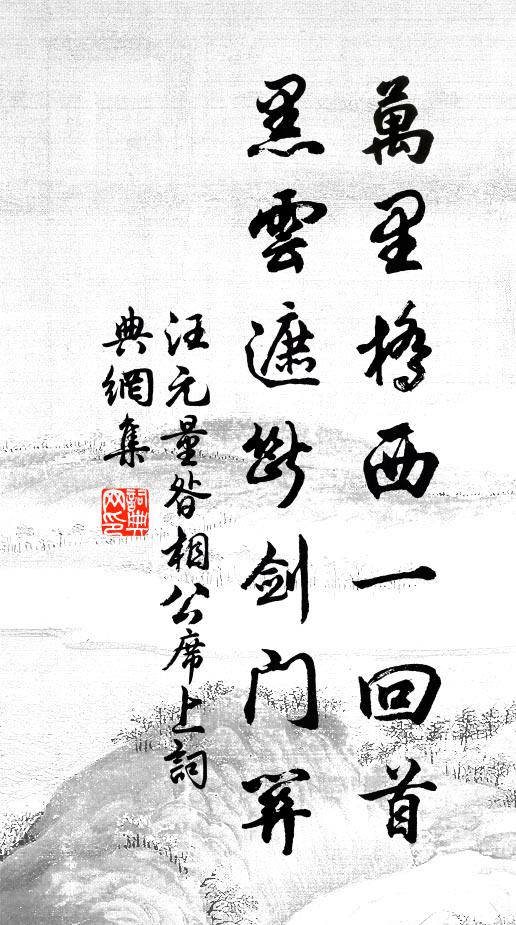 萬里橋西一回首
黑雲遮斷劍门關
汪元量昝相公席上詞
典網集
詞典
网印